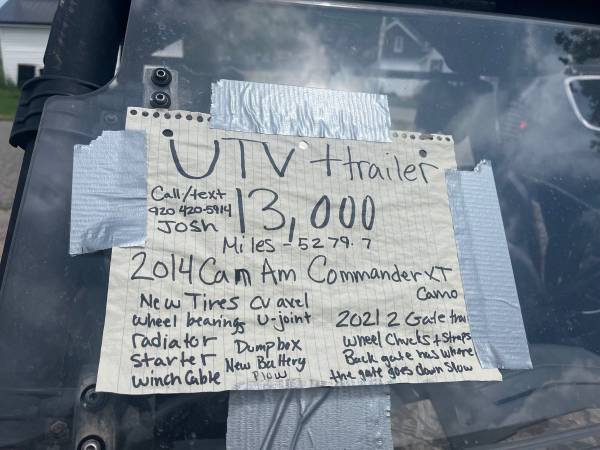 UTV + trailer
Call/text
920 420-5914
Josh
13,000
Miles - 5279.7
2014 Cam Am Commander XT
Camo
New Tires CV axel
wheel bearings U-joint
radiator Dumpbox
Starter New Battery
winch Cable Plow
2021 2 Gate
wheel Chucks + Straps
Back gate has where
the gate goes down Slow